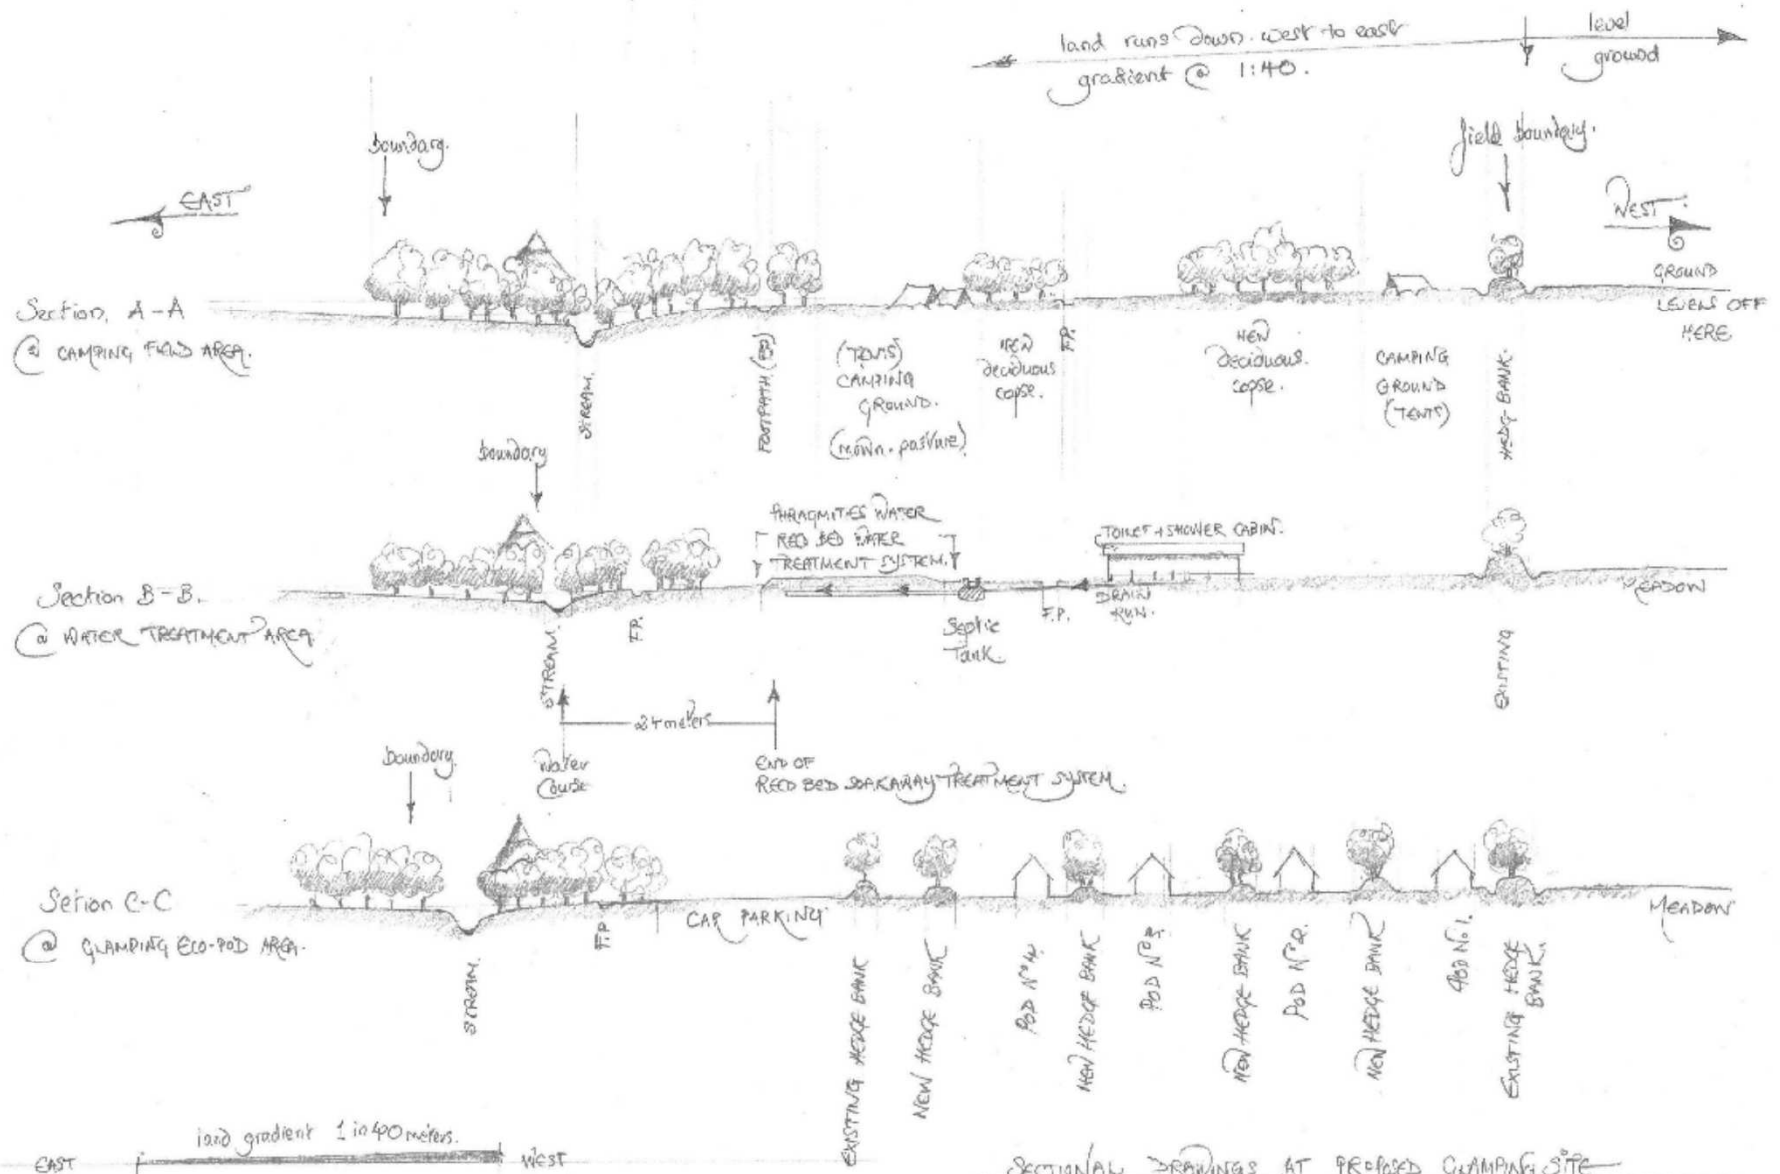 land runs down. west to east
gradient @ 1:40.
level
ground
boundary.
field boundary.
EAST
WEST.
Section. A-A
@ CAMPING FIELD AREA.
GROUND
LEVELS OFF
HERE
STREAM.
FOOTPATH. (FP)
(TENTS)
CAMPING
GROUND.
(mown. pasture)
NEW
deciduous
copse.
F.P.
NEW
deciduous.
copse.
CAMPING
GROUND
(TENTS)
HEDG-BANK.
boundary
PHRAGMITES WATER
REED BED WATER
TREATMENT SYSTEM.
TOILET + SHOWER CABIN.
Section B-B.
@ WATER TREATMENT AREA
STREAM.
F.P.
Septic
Tank.
F.P.
DRAIN
RUN.
EXISTING
MEADOW
24 meters
boundary.
Water
Course
END OF
REED BED SOAKAWAY TREATMENT SYSTEM.
Setion C-C
@ GLAMPING ECO-POD AREA.
STREAM.
F.P.
CAR PARKING
EXISTING HEDGE BANK
NEW HEDGE BANK
POD No 4.
NEW HEDGE BANK
POD No 3.
NEW HEDGE BANK
POD No 2.
NEW HEDGE BANK
POD No 1.
EXISTING HEDGE
BANK.
MEADOW
land gradient 1 in 40 meters.
EAST
WEST
SECTIONAL DRAWINGS AT PROPOSED GLAMPING SITE